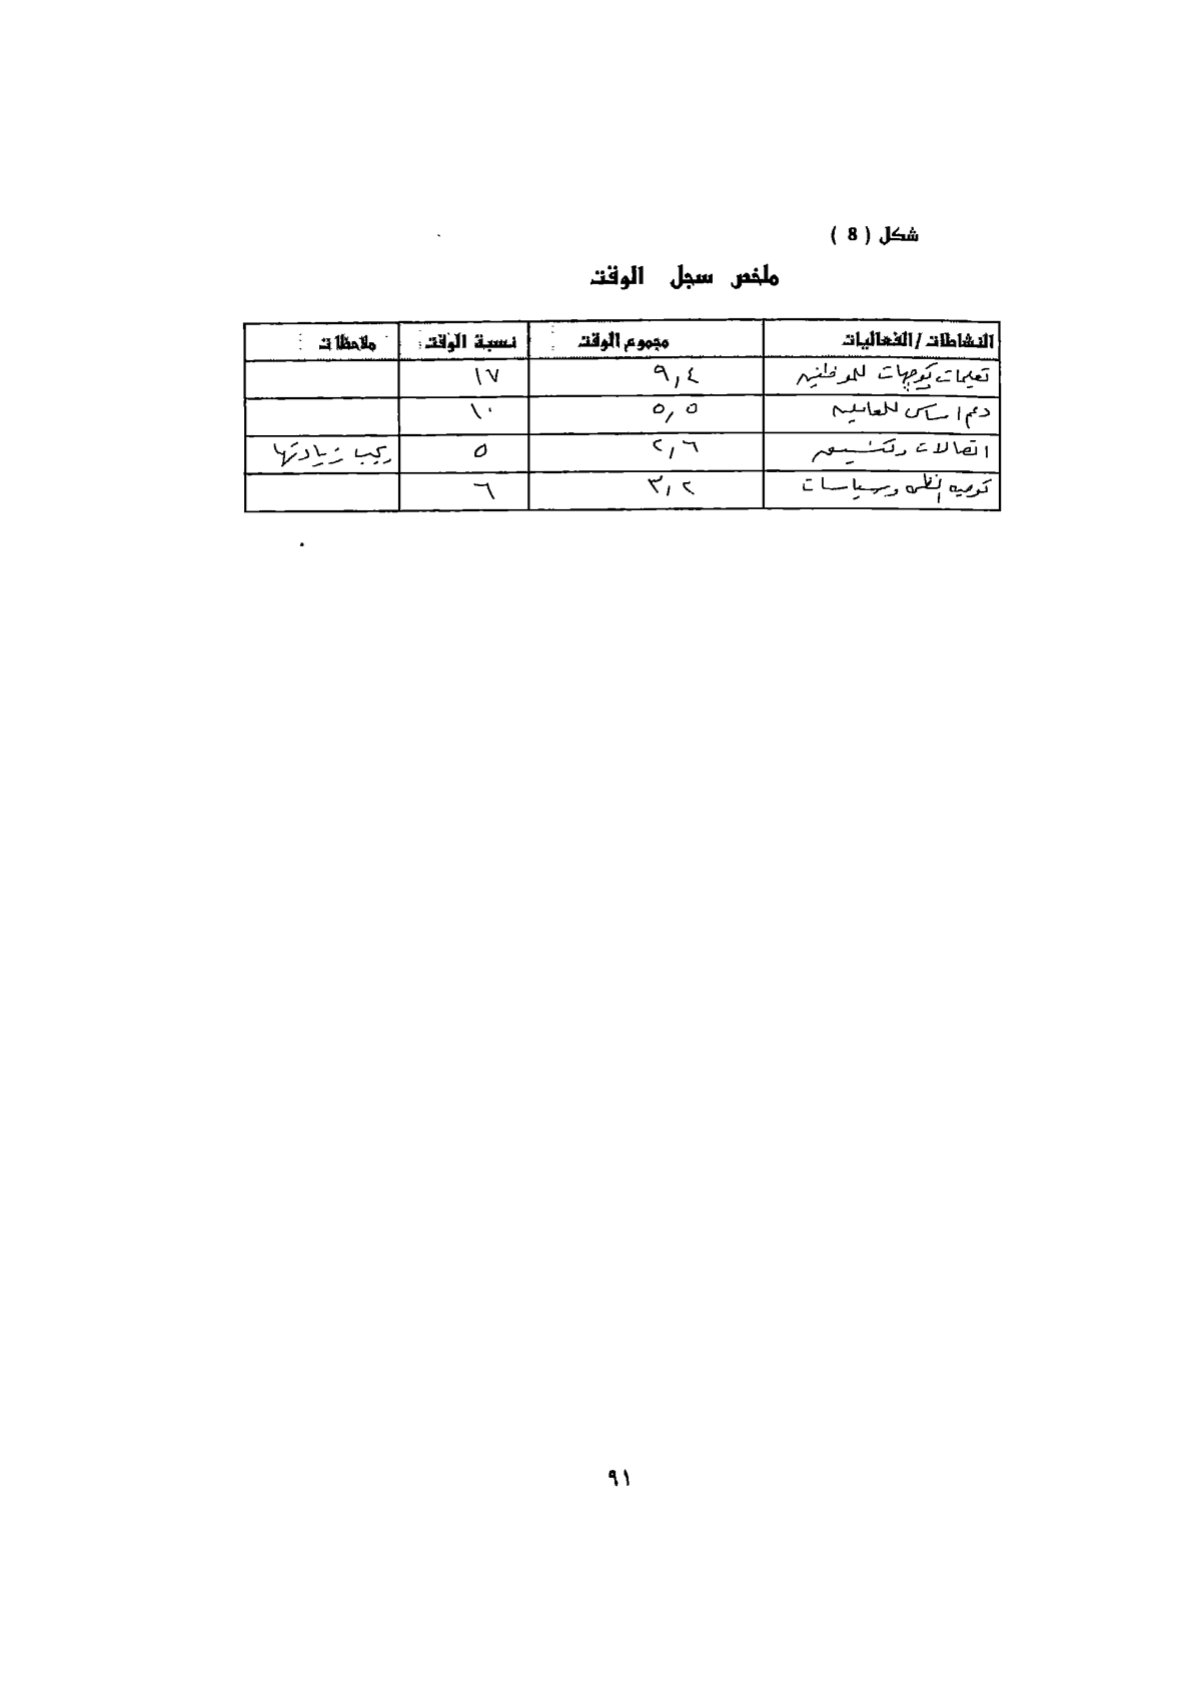 شكل ( 8 )
ملخص سجل الوقت
النشاطات / الفعاليات مجموع الوقت نسبة الوقت ملاحظات
تعليمات للموظفين ٩,٤ ١٧
دعم اساسي للعاملين ٥,٥ ١٠
اتصالات وتنسيق ٢,٦ ٥ يجب زيادتها
وسياسات ٣,٢ ٦
٩١